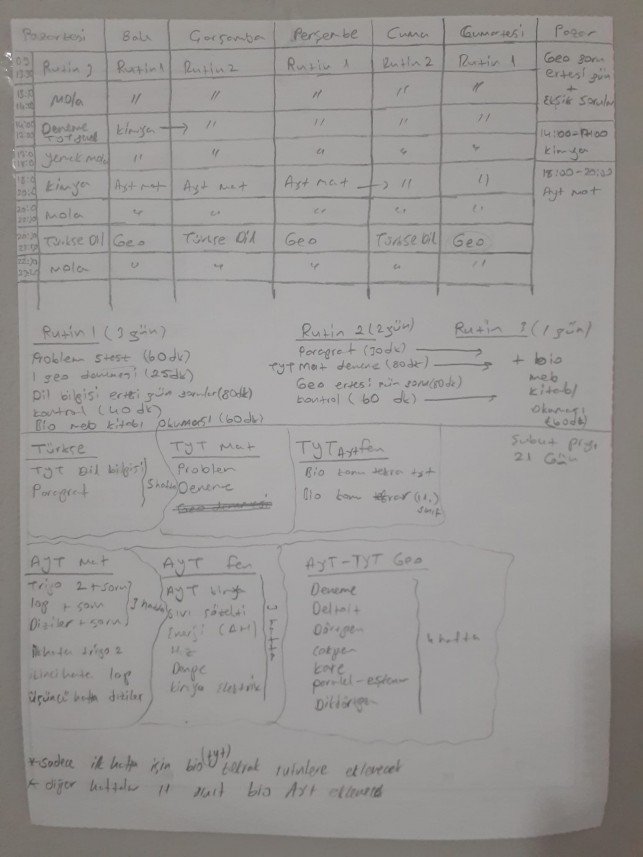 Pazartesi Salı Çarşamba Perşembe Cuma Cumartesi Pazar
Rutin 3 Rutin 1 Rutin 2 Rutin 1 Rutin 2 Rutin 1 Geo soru
ertesi gün
+
Eksik sorular
Mola " " " " "
Deneme Kimya → " " " " 14:00-17:00
TYT genel
Kimya
Yemek Mola " " " " "
Kimya Ayt mat Ayt mat Ayt mat → " " 18:00-20:00
Ayt mat
Mola " " " " "
Türkçe Dil Geo Türkçe Dil Geo Türkçe Dil Geo
Mola " " " " "
Rutin 1 (3 gün)
Problem 5 test (60dk)
1 geo denemesi (25dk)
Dil bilgisi ertesi gün sorular (80dk)
kontrol (40 dk)
Bio meb kitabı okuması (60dk)
Rutin 2 (2 gün)
Paragraf (30dk) →
TYT mat deneme (80dk) →
Geo ertesi gün soru (80dk)
kontrol (60 dk) →
Rutin 3 (1 gün)
+ bio
meb
kitabı
okuması
(60dk)
Şubat
21 Gün
Türkçe
TYT Dil bilgisi
Paragraf
5 hafta
TYT Mat
Problem
Deneme
Geo denemesi
TYT Ayt fen
Bio konu tekrar tyt
Bio konu tekrar (11.)
sınıf
AYT Mat
Trigo 2 + soru
log + soru
Diziler + soru
3 hafta
ilk hafta trigo 2
ikinci hafta log
üçüncü hafta diziler
AYT fen
AYT kimya
Sıvı çözelti
Enerji (ΔH)
Hız
Denge
Kimya elektrik
3 hafta
AYT-TYT Geo
Deneme
Deltoit
Dörtgen
Çokgen
Kare
paralel-eşkenar
Dikdörtgen
4 hafta
* sadece ilk hafta için bio (tyt) tekrar rutinlere eklenecek
* diğer haftalar 11 sınıf bio Ayt eklenecek